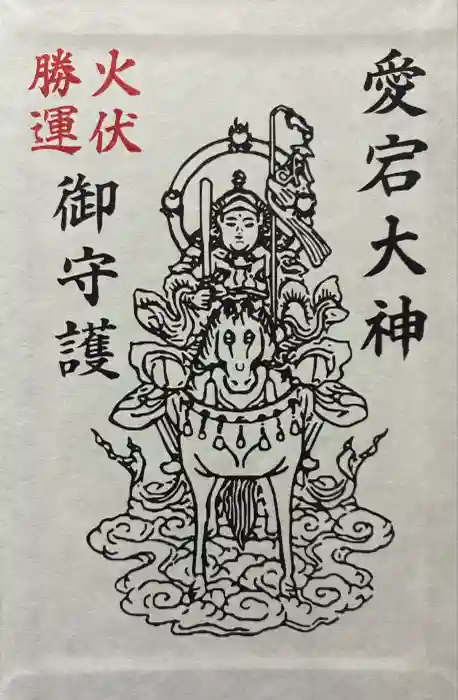 愛宕大神
火伏
勝運
御守護